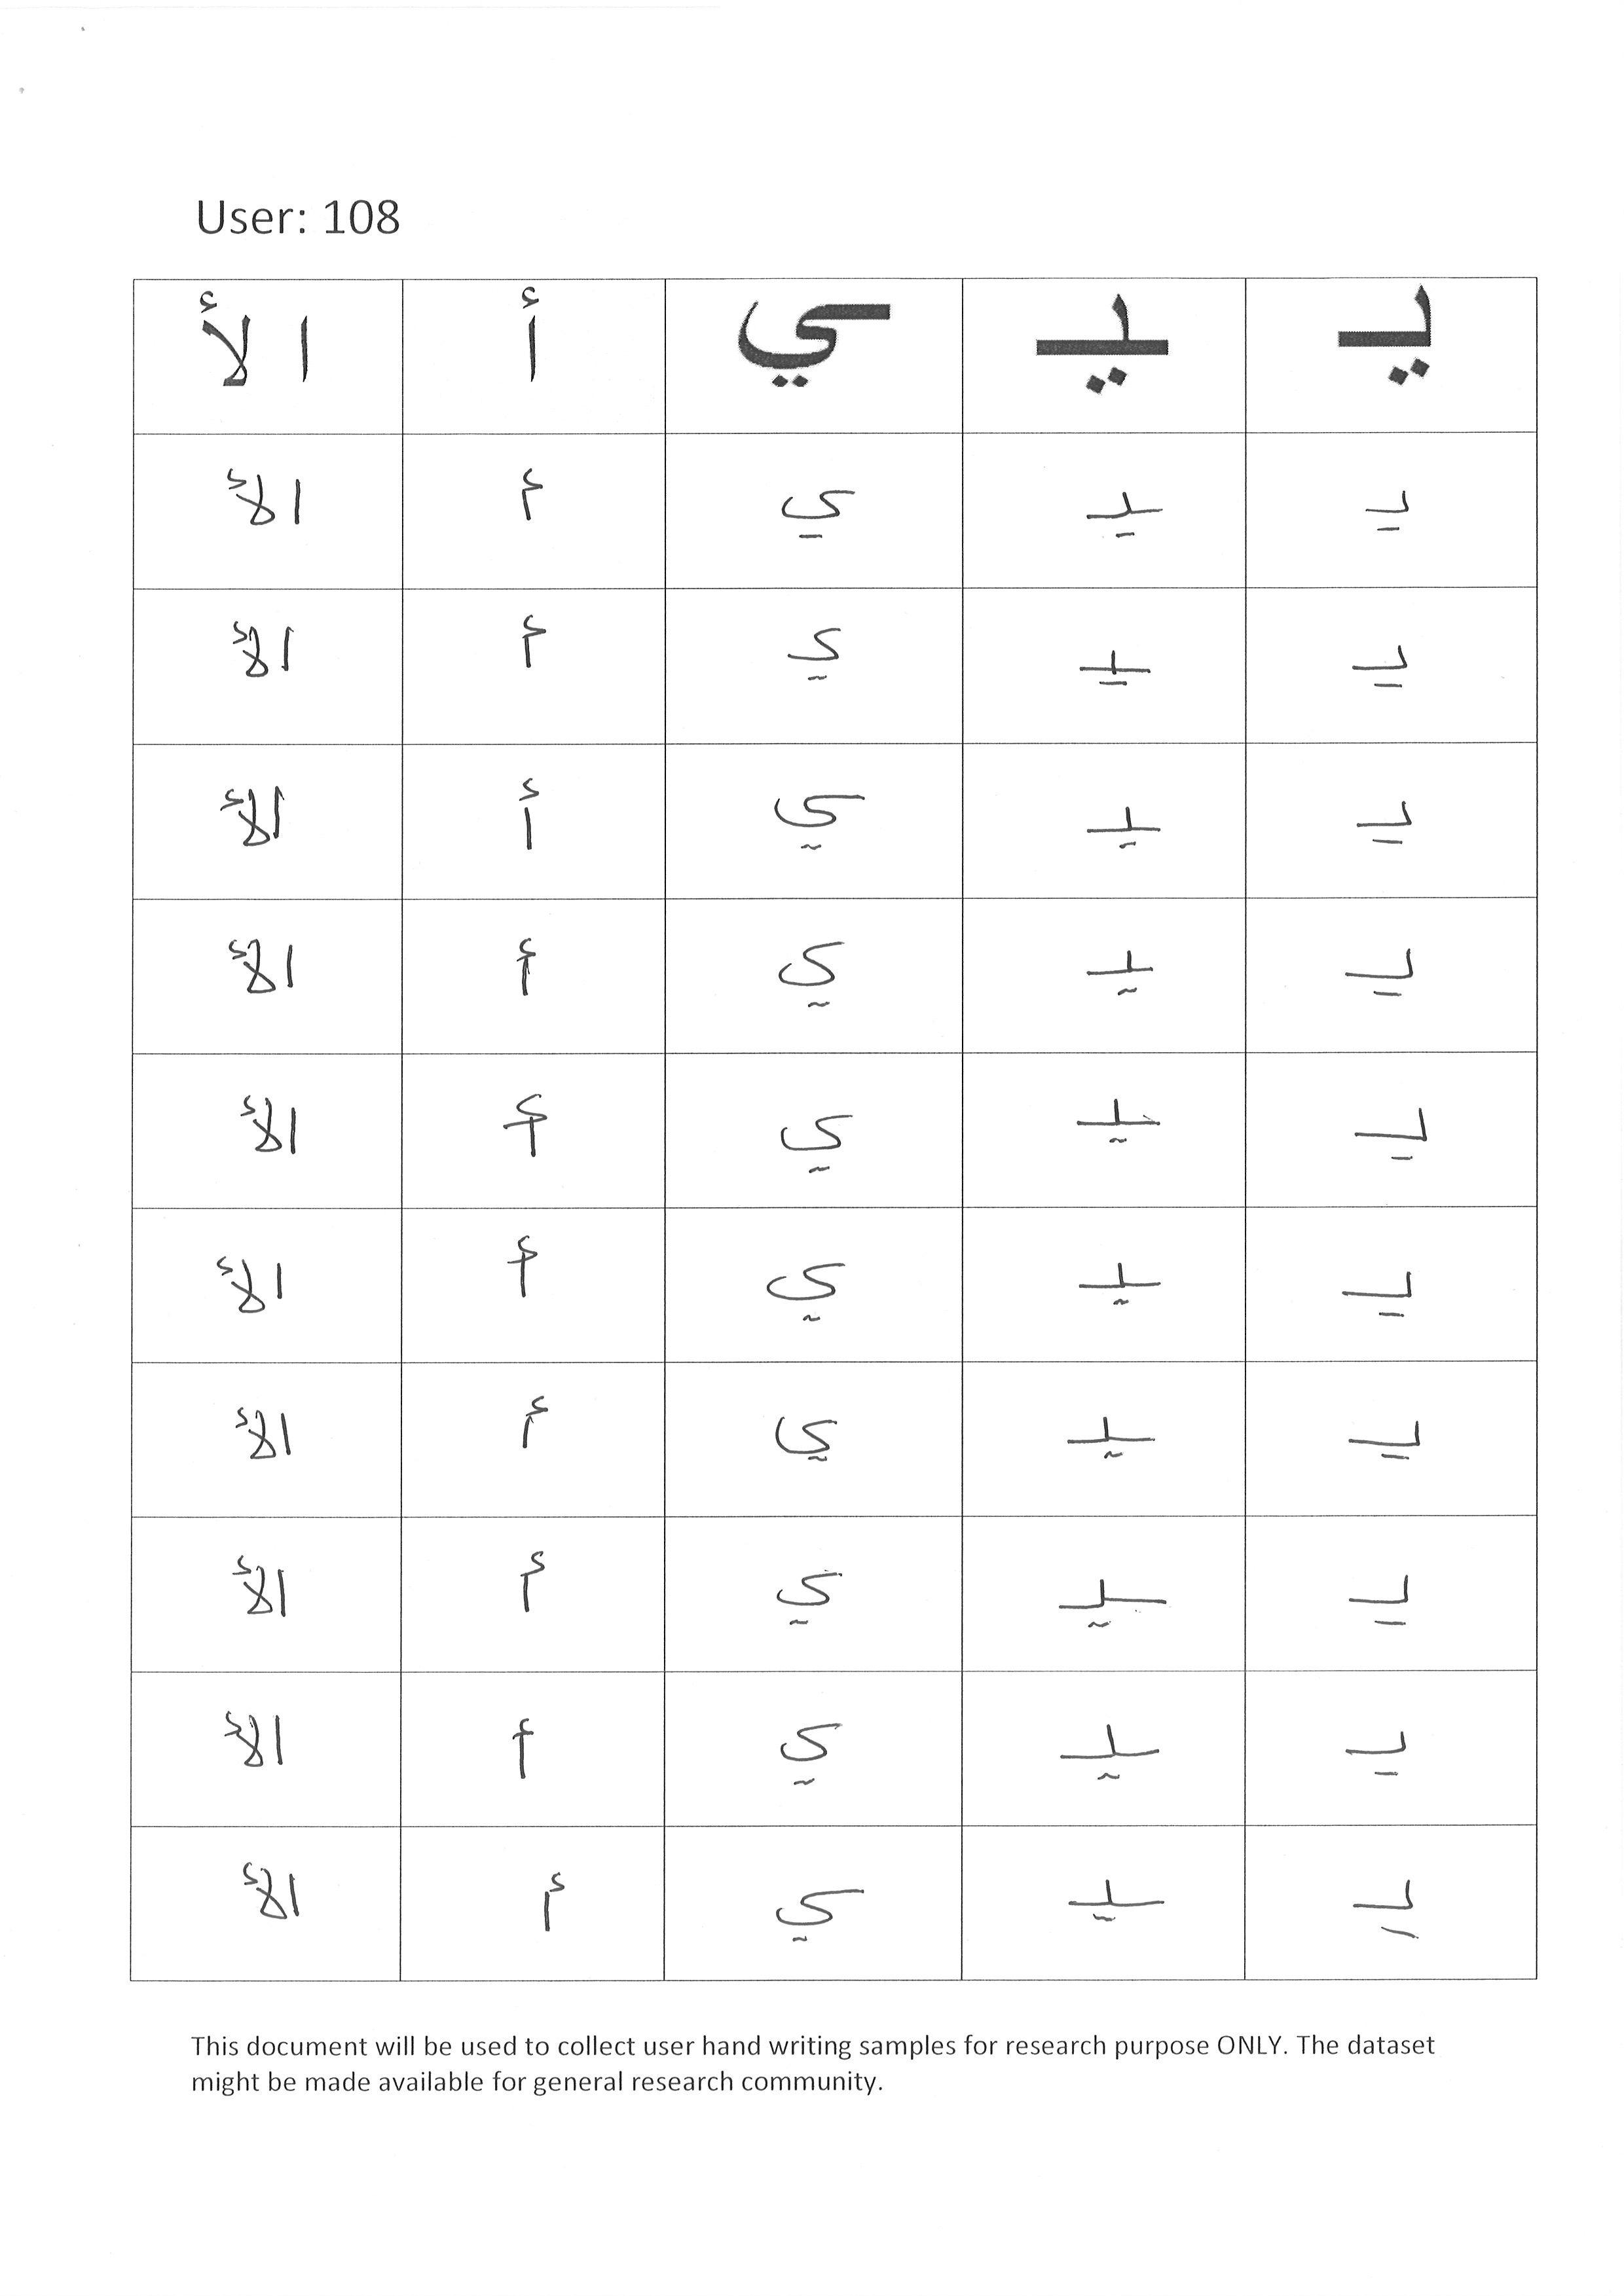 User: 108
يـ ـيـ ـي أ ا لأ
يـ ـيـ ي أ الأ
يـ ـيـ ي أ الأ
يـ ـيـ ي أ الأ
يـ ـيـ ي أ الأ
يـ ـيـ ي أ الأ
يـ ـيـ ي أ الأ
يـ ـيـ ي أ الأ
يـ ـيـ ي أ الأ
يـ ـيـ ي أ الأ
يـ ـيـ ي أ الأ
This document will be used to collect user hand writing samples for research purpose ONLY. The dataset
might be made available for general research community.